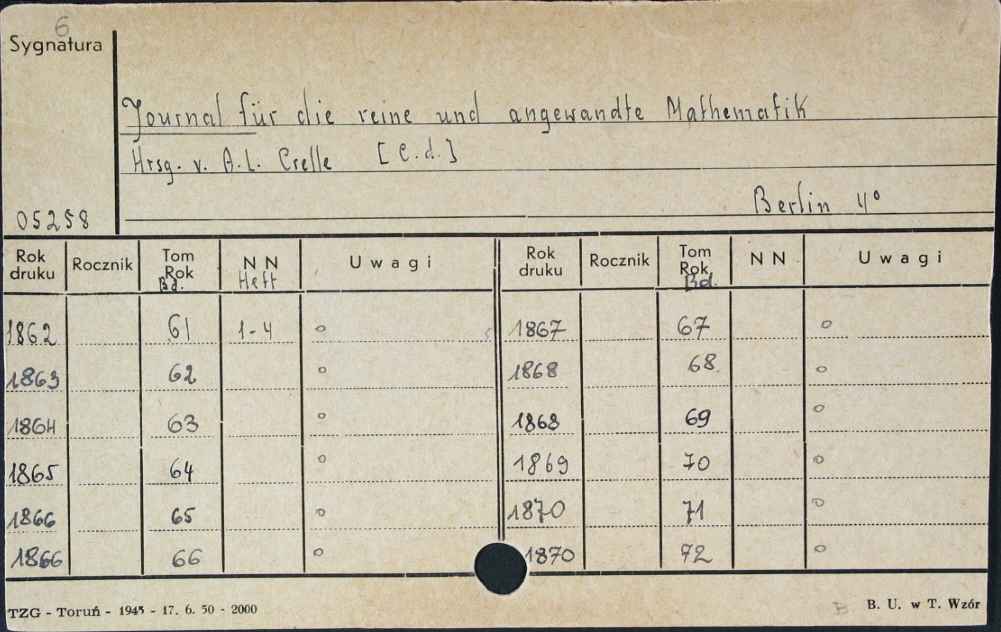 6
Sygnatura
Journal für die reine und angewandte Mathematik
Hrsg. v. A.L. Crelle [C.d.]
Berlin 4°
05258
Rok druku Rocznik Tom Rok Bd. NN Heft Uwagi Rok druku Rocznik Tom Rok Bd. NN Uwagi
1862 61 1-4 o 1867 67 o
1863 62 o 1868 68 o
1864 63 o 1868 69 o
1865 64 o 1869 70 o
1866 65 o 1870 71 o
1866 66 o 1870 72 o
TZG - Toruń - 1945 - 17. 6. 50 - 2000 B B. U. w T. Wzór